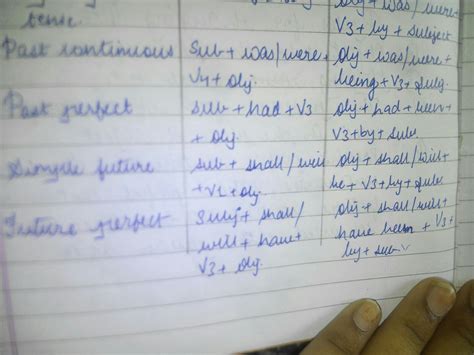 tense.
obj + was/were +
V3 + by + subject
Past continuous
sub + was/were +
V4 + obj.
obj + was/were +
being + V3 + subj.
Past perfect
sub + had + V3
+ obj.
obj + had + been +
V3 + by + sub.
Simple future
sub + shall/will
+ V1 + obj.
obj + shall/will +
be + V3 + by + sub.
Future perfect
Subj + shall/
will + have +
V3 + obj.
obj + shall/will +
have been + V3 +
by + sub